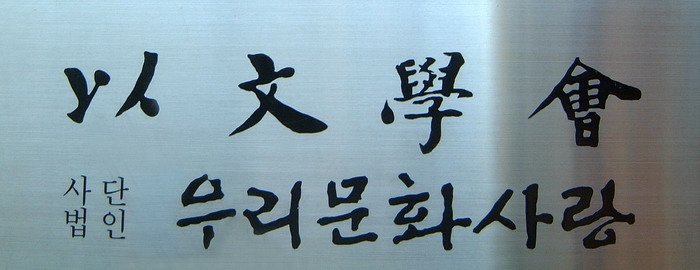 以文學會
사단
법인
우리문화사랑